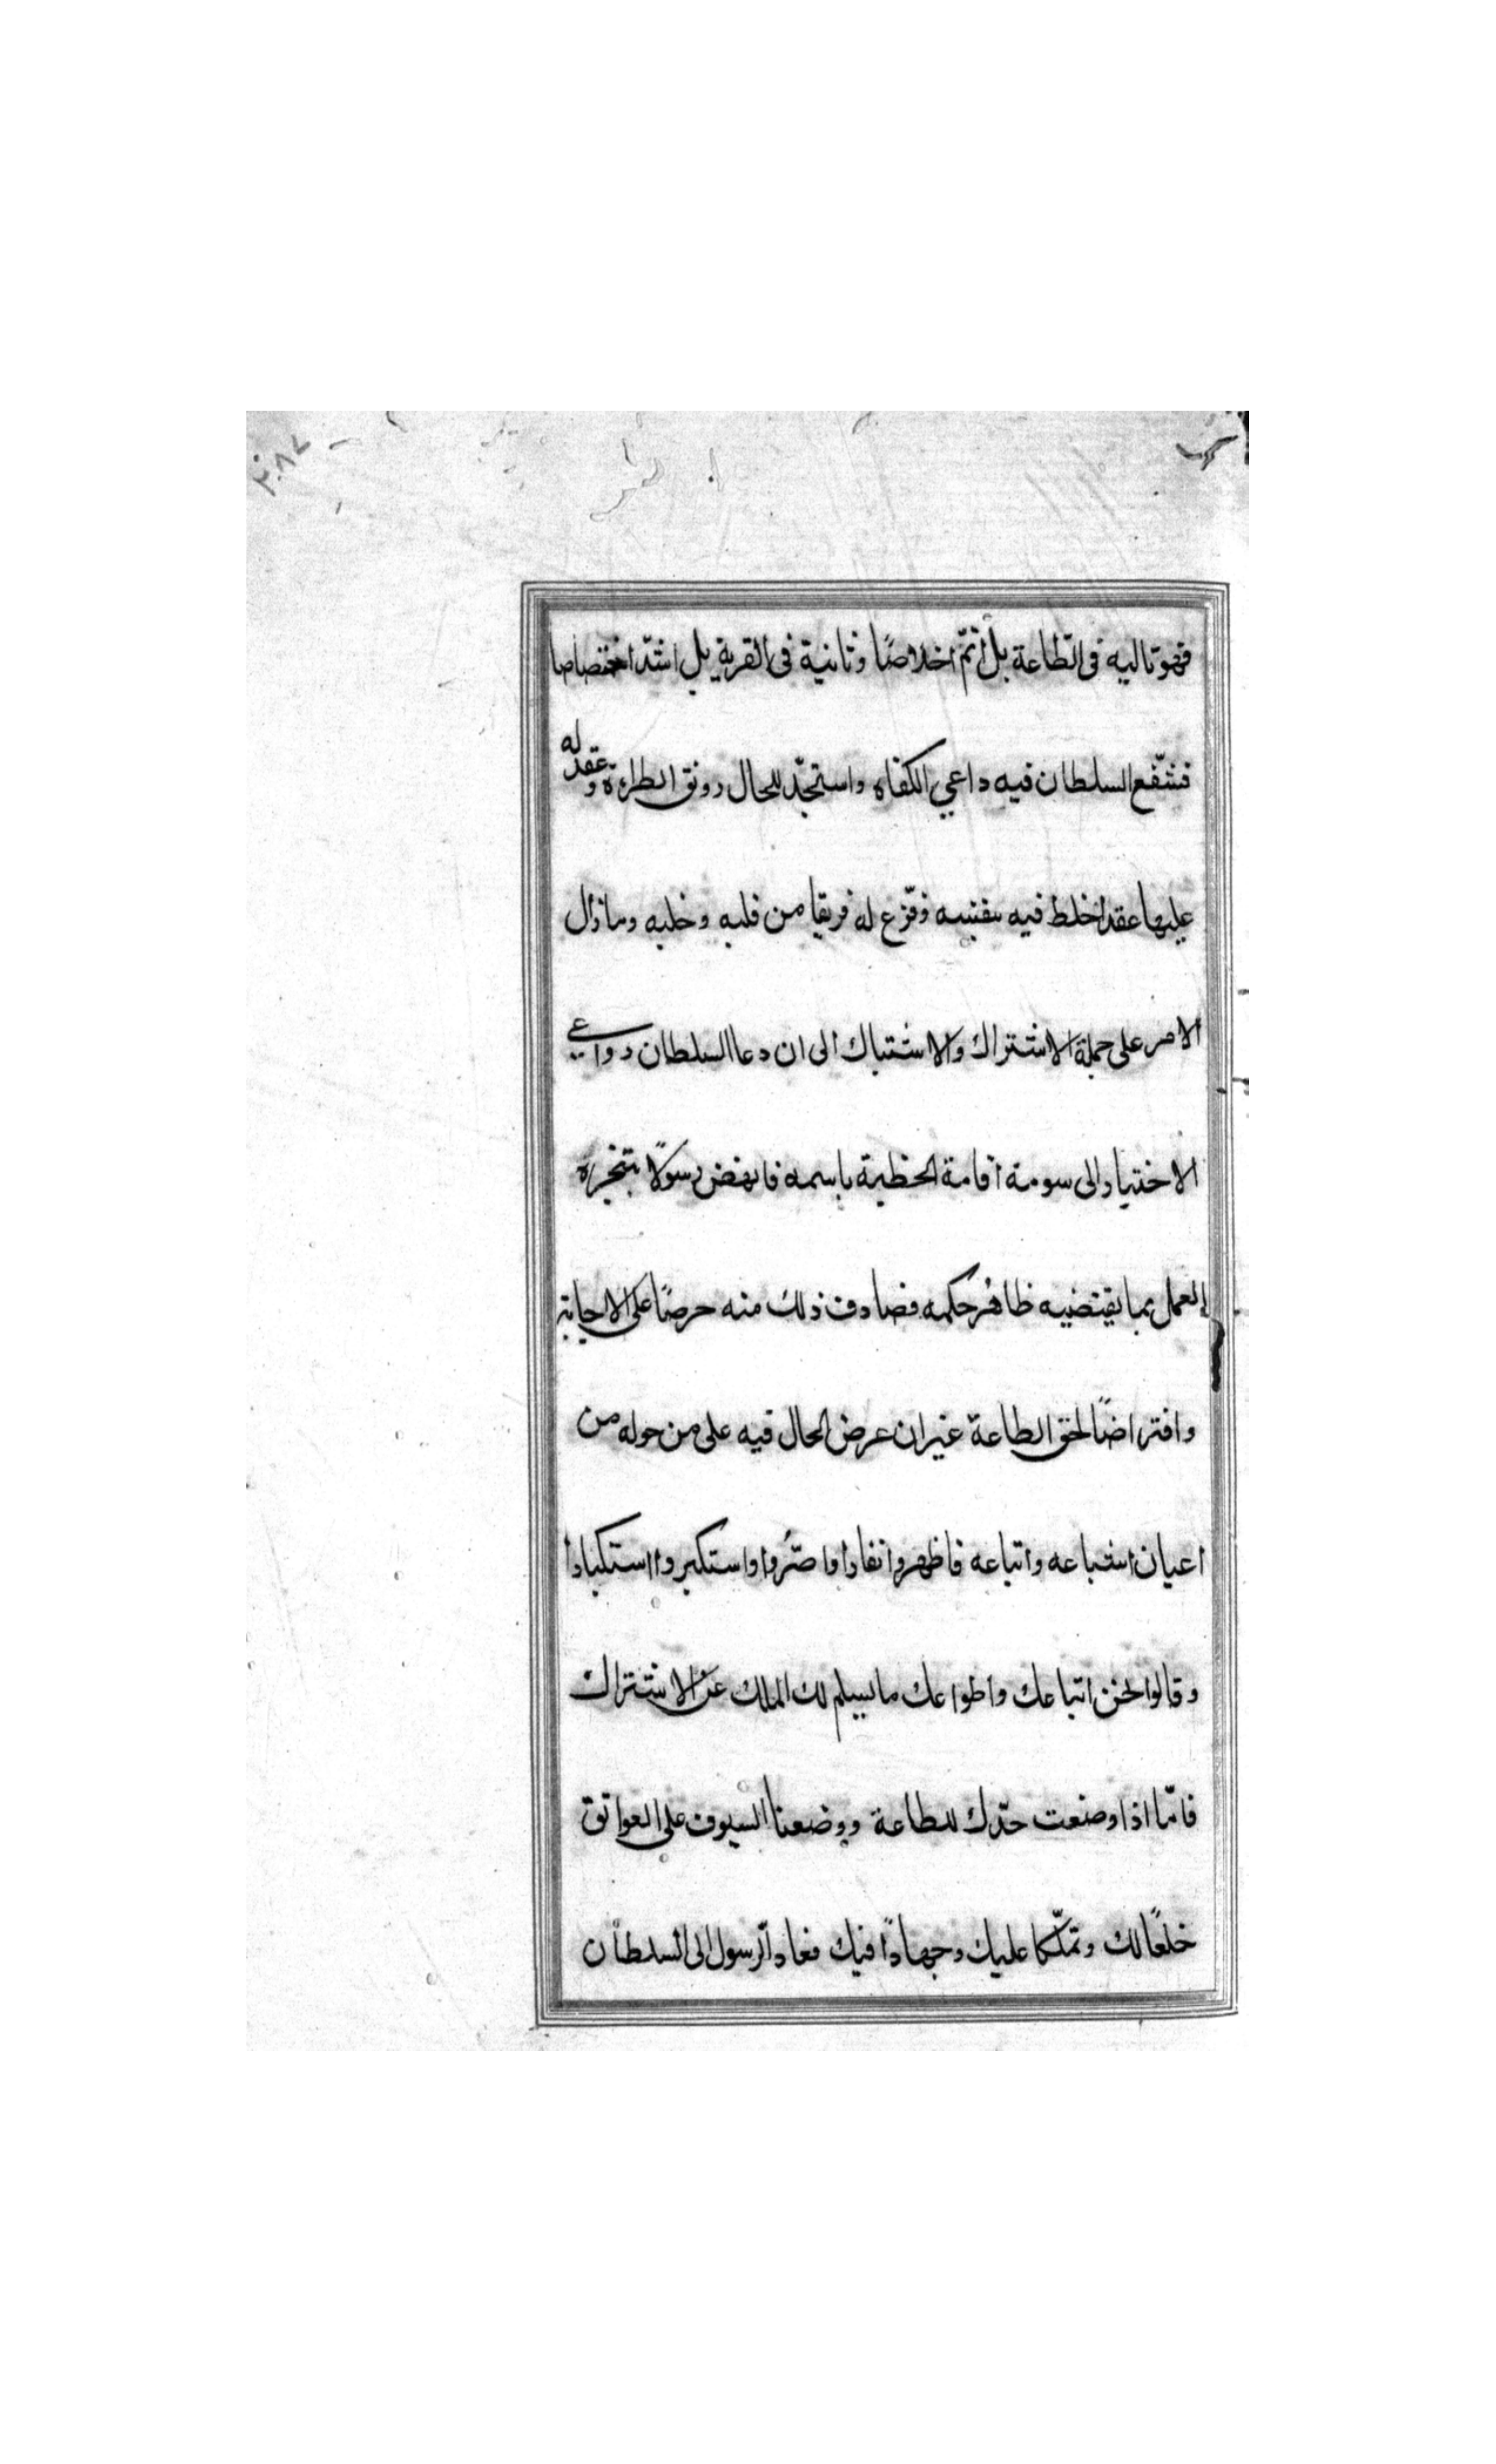 ٢٠٨٧
فهو تاليه فى الطاعة بل أتمّ اخلاصًا وثانية فى القربة بل اشدّ اختصاصا
فشفّع السلطان فيه داعي الكفاه واستجدّ للحال رونق الطراءة وعقد له
عليها عقدا خلط فيه بنفسه وفرّع له فريقا من قلبه وخلبه وما زال
الامر على جملة الاشتراك والاشتباك الى ان دعا السلطان دواعي
الاختيار الى سومة اقامة الخطبة باسمه فانهض رسولًا بتنجزه
العمل بما يقتضيه ظاهر حكمه فصادف ذلك منه حرصًا على الاجابة
وافتراضًا لحق الطاعة غير ان عرض الحال فيه على من حوله من
اعيان اشباعه واتباعه فاظهروا نفارا واصرّوا واستكبروا استكبارا
وقالوا نحن اتباعك واطواعك ما يسلم لك الملك عن الاشتراك
فامّا اذا وضعت خدّك للطاعة ووضعنا السيوف على العواتق
خلعًا لك وتملّكا عليك وجهادًا فيك فعاد الرسول الى السلطان